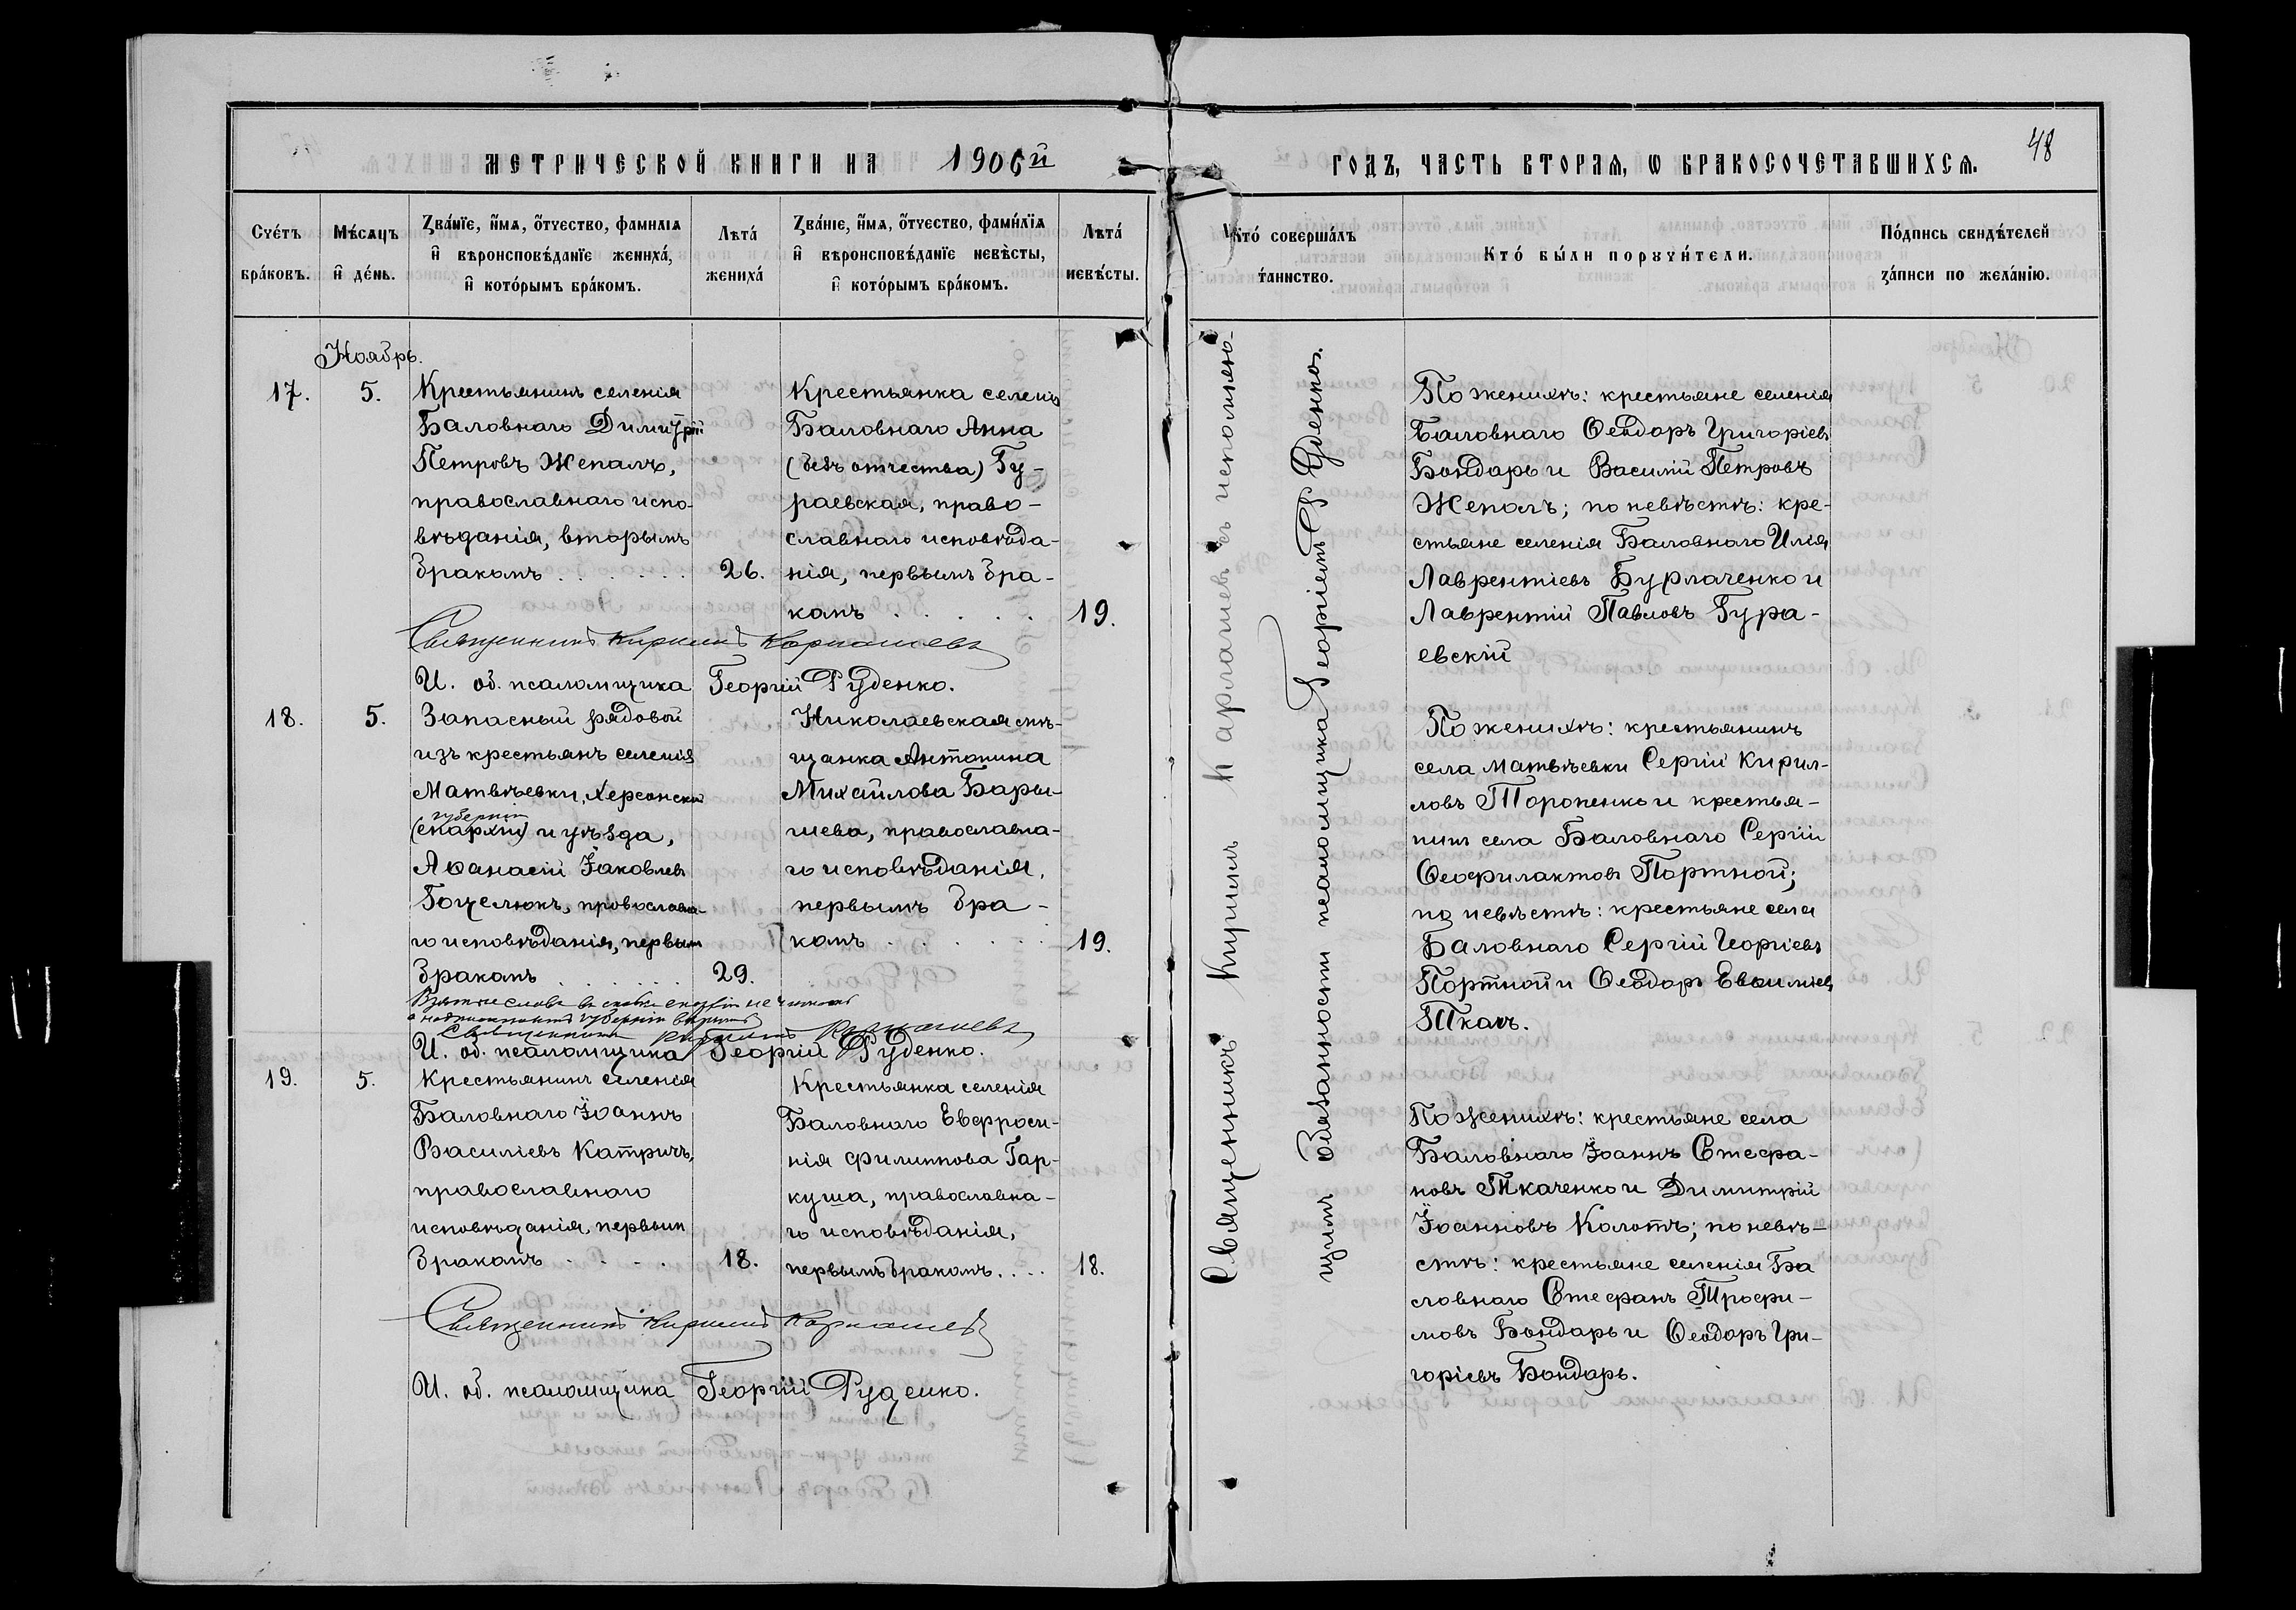 МЕТРИЧЕСКОЙ КНИГИ НА 1906й
ГОДЪ, ЧАСТЬ ВТОРАЯ, Ѡ БРАКОСОЧЕТАВШИХСЯ.
48
Счетъ браковъ.
Мѣсяцъ и день.
Званіе, имя, отчество, фамилія
и вѣроисповѣданіе жениха,
и которымъ бракомъ.
Лѣта
жениха
Званіе, имя, отчество, фамилія
и вѣроисповѣданіе невѣсты,
и которымъ бракомъ.
Лѣта
невѣсты.
Кто совершалъ
таинство.
Кто были поручители.
Подпись свидѣтелей
записи по желанію.
Ноябрь.
17.
5.
Крестьянинъ селенія
Баловнаго Димитрій
Петровъ Жепалъ,
православнаго испо-
вѣданія, вторымъ
бракомъ . . . . . .
26.
Крестьянка селенія
Баловнаго Анна
(безъ отчества) Гу-
раевская, право-
славнаго исповѣда-
нія, первымъ бра-
комъ . . . . .
19.
Священникъ Кириллъ Карпашевъ
И. об. псаломщика Георгій Руденко.
18.
5.
Запасный рядовой
изъ крестьянъ селенія
Матвѣевки, Херсонской
губерніи
(епархіи) и уѣзда,
Аѳанасій Іаковлевъ
Гоцелюкъ, православна-
го исповѣданія, первымъ
бракомъ . . . . .
29.
Николаевская мѣ-
щанка Антонина
Михайлова Бары-
шева, православна-
го исповѣданія,
первымъ бра-
комъ . . . . .
19.
Взятое слово въ скобки епархіи не читать
а надписанное губерніи вѣрно
Священникъ Кириллъ Карпашевъ
И. об. псаломщика Георгій Руденко.
19.
5.
Крестьянинъ селенія
Баловнаго Іоаннъ
Василіевъ Катричъ,
православнаго
исповѣданія, первымъ
бракомъ . . . .
18.
Крестьянка селенія
Баловнаго Евфроси-
нія Филиппова Гар-
куша, православна-
го исповѣданія,
первымъ бракомъ . . . .
18.
Священникъ Кириллъ Карпашевъ
И. об. псаломщика Георгій Руденко.
Священникъ Кириллъ Карпашевъ съ исполняю-
щимъ обязанности псаломщика Георгіемъ Руденко.
По женихѣ: крестьяне селенія
Баловнаго Ѳеодоръ Григоріевъ
Бондарь и Василій Петровъ
Жепалъ; по невѣстѣ: кре-
стьяне селенія Баловнаго Илія
Лаврентіевъ Бурлаченко и
Лаврентій Павловъ Гура-
евскій
По женихѣ: крестьянинъ
села Матвѣевки Сергій Кирил-
ловъ Тороненко и крестья-
нинъ села Баловнаго Сергій
Ѳеофилактовъ Портной;
по невѣстѣ: крестьяне села
Баловнаго Сергій Георгіевъ
Портной и Ѳеодоръ Евѳиміевъ
Ткачъ.
По женихѣ: крестьяне села
Баловнаго Іоаннъ Стефа-
новъ Ткаченко и Димитрій
Іоанновъ Колотъ; по невѣ-
стѣ: крестьяне селенія Ба
ловнаго Стефанъ Трофи-
мовъ Бондарь и Ѳеодоръ Гри-
горіевъ Бондарь.